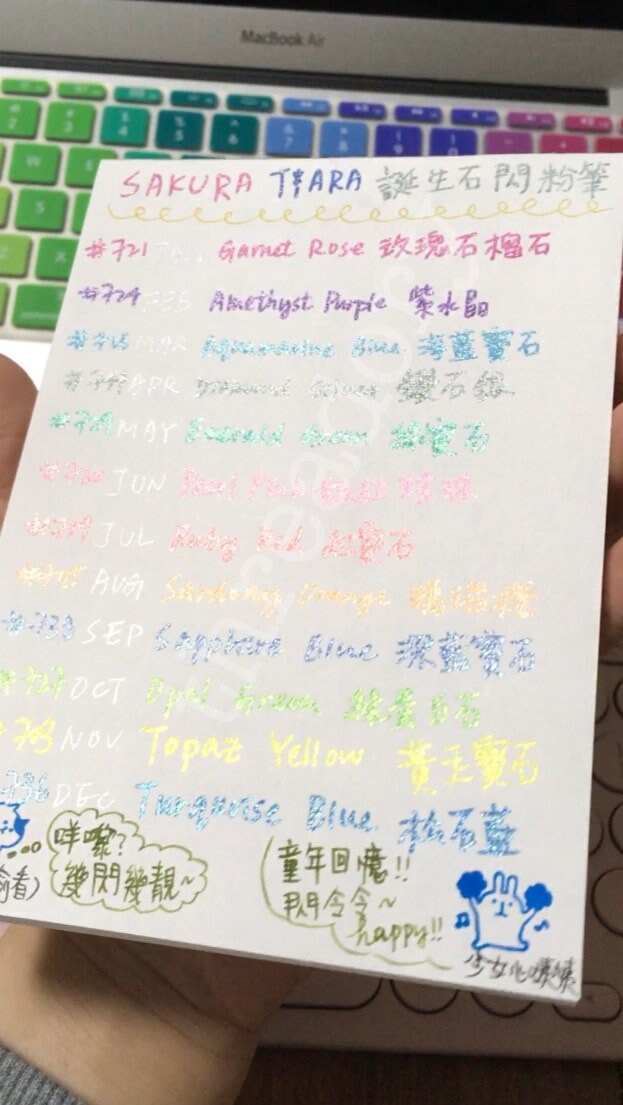 MacBook Air
SAKURA TIARA 誕生石閃粉筆
#721 JAN Garnet Rose 玫瑰石榴石
#724 FEB Amethyst Purple 紫水晶
MAR Aquamarine Blue 海藍寶石
APR Diamond Silver 鑽石銀
MAY Emerald Green 綠寶石
JUN Pearl Pink 粉紅珍珠
JUL Ruby Red 紅寶石
AUG Sardonyx Orange 瑪瑙橙
SEP Sapphire Blue 深藍寶石
OCT Opal Green 綠蛋白石
NOV Topaz Yellow 黃玉寶石
#736 DEC Turquoise Blue 松石藍
咩嚟?
幾閃幾靚~
童年回憶!!
閃令令~
happy!!